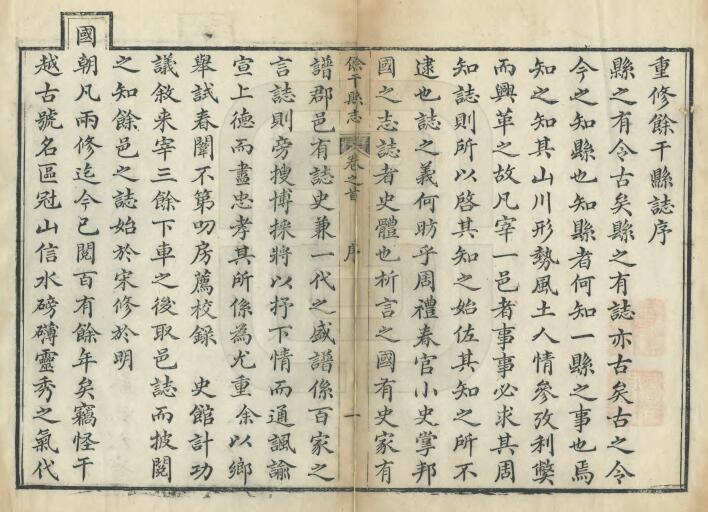 重修餘干縣誌序
縣之有令古矣縣之有誌亦古矣古之令
今之知縣也知縣者何知一縣之事也焉
知之知其山川形勢風土人情參攷利弊
而興革之故凡宰一邑者事事必求其周
知誌則所以啓其知之始佐其知之所不
逮也誌之義何昉乎周禮春官小史掌邦
國之志誌者史體也析言之國有史家有
餘干縣志
卷之首
序
一
譜郡邑有誌史兼一代之盛譜係百家之
言誌則旁搜博採將以抒下情而通諷諭
宣上德而盡忠孝其所係為尤重余以鄉
舉試春闈不第四房薦校錄 史館計功
議敘来宰三餘下車之後取邑誌而披閱
之知餘邑之誌始於宋修於明
國朝凡兩修迄今已閱百有餘年矣竊怪干
越古號名區冠山信水磅礡靈秀之氣代